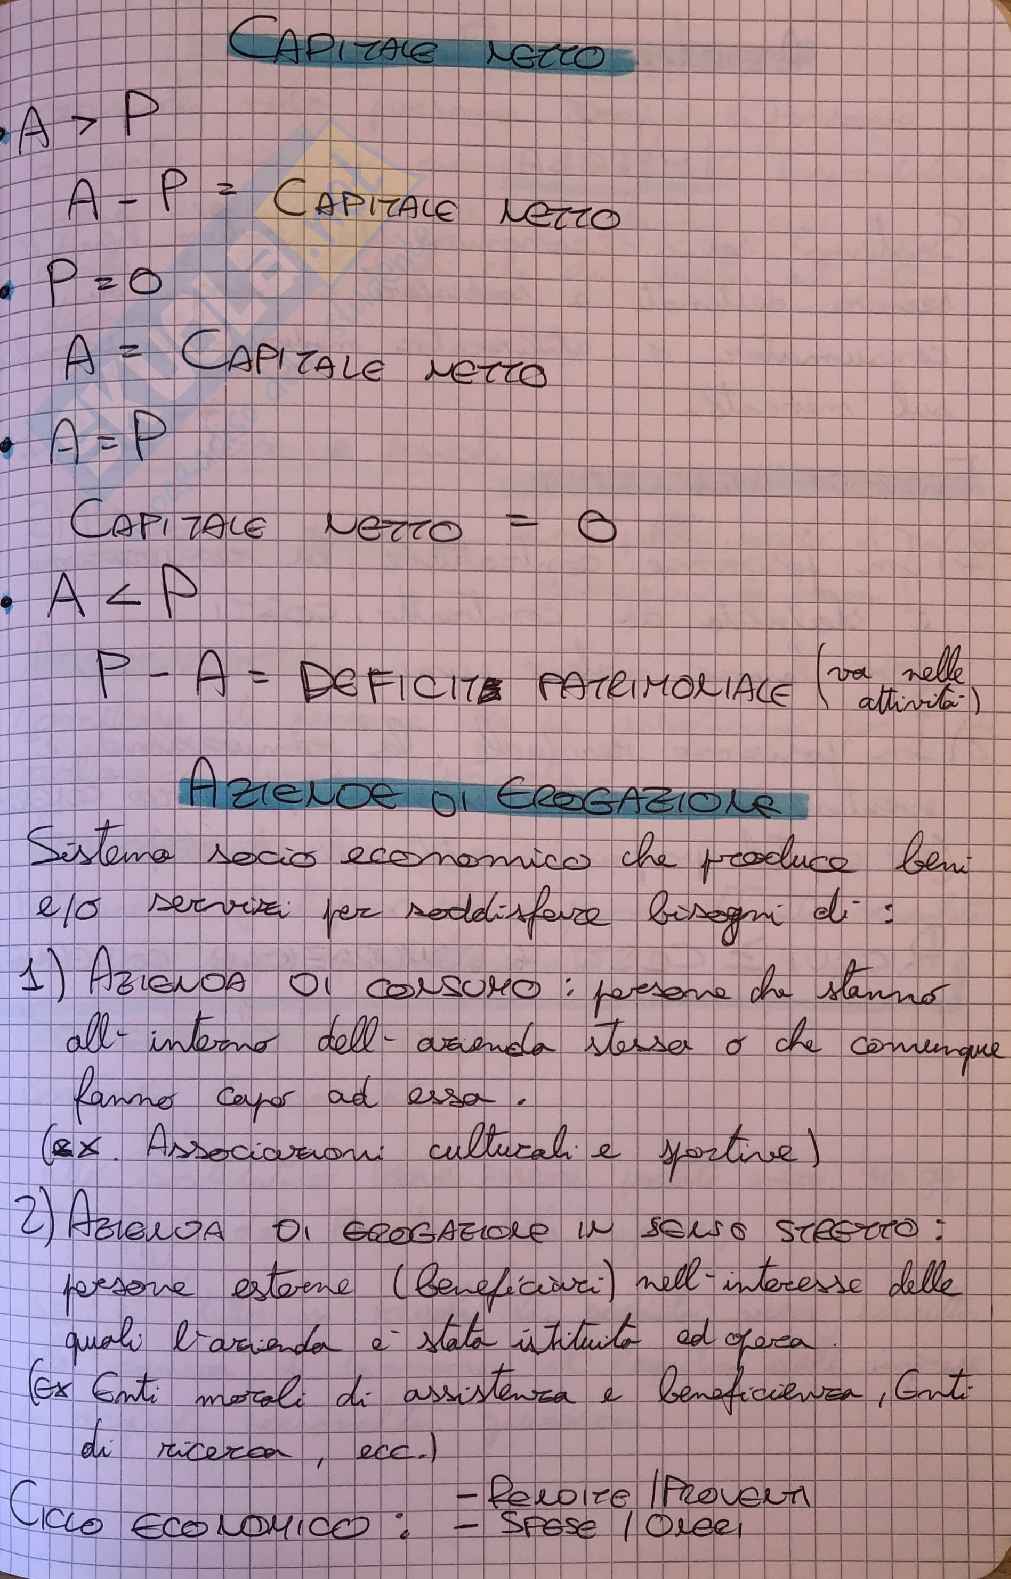 CAPITALE NETTO
• A > P
A - P = CAPITALE NETTO
• P = 0
A = CAPITALE NETTO
• A = P
CAPITALE NETTO = 0
• A < P
P - A = DEFICIT PATRIMONIALE (va nelle attività)
AZIENDE DI EROGAZIONE
Sistema socio economico che produce beni
e/o servizi per soddisfare bisogni di :
1) AZIENDA DI CONSUMO : persone che stanno
all'interno dell'azienda stessa o che comunque
fanno capo ad essa.
(ex. Associazioni culturali e sportive)
2) AZIENDA DI EROGAZIONE IN SENSO STRETTO :
persone esterne (beneficiari) nell'interesse delle
quali l'azienda è stata istituita ed opera.
(Ex Enti morali di assistenza e beneficienza, Enti
di ricerca, ecc.)
CICLO ECONOMICO : - RENDITE / PROVENTI
- SPESE / ONERI
SKUOLA.net